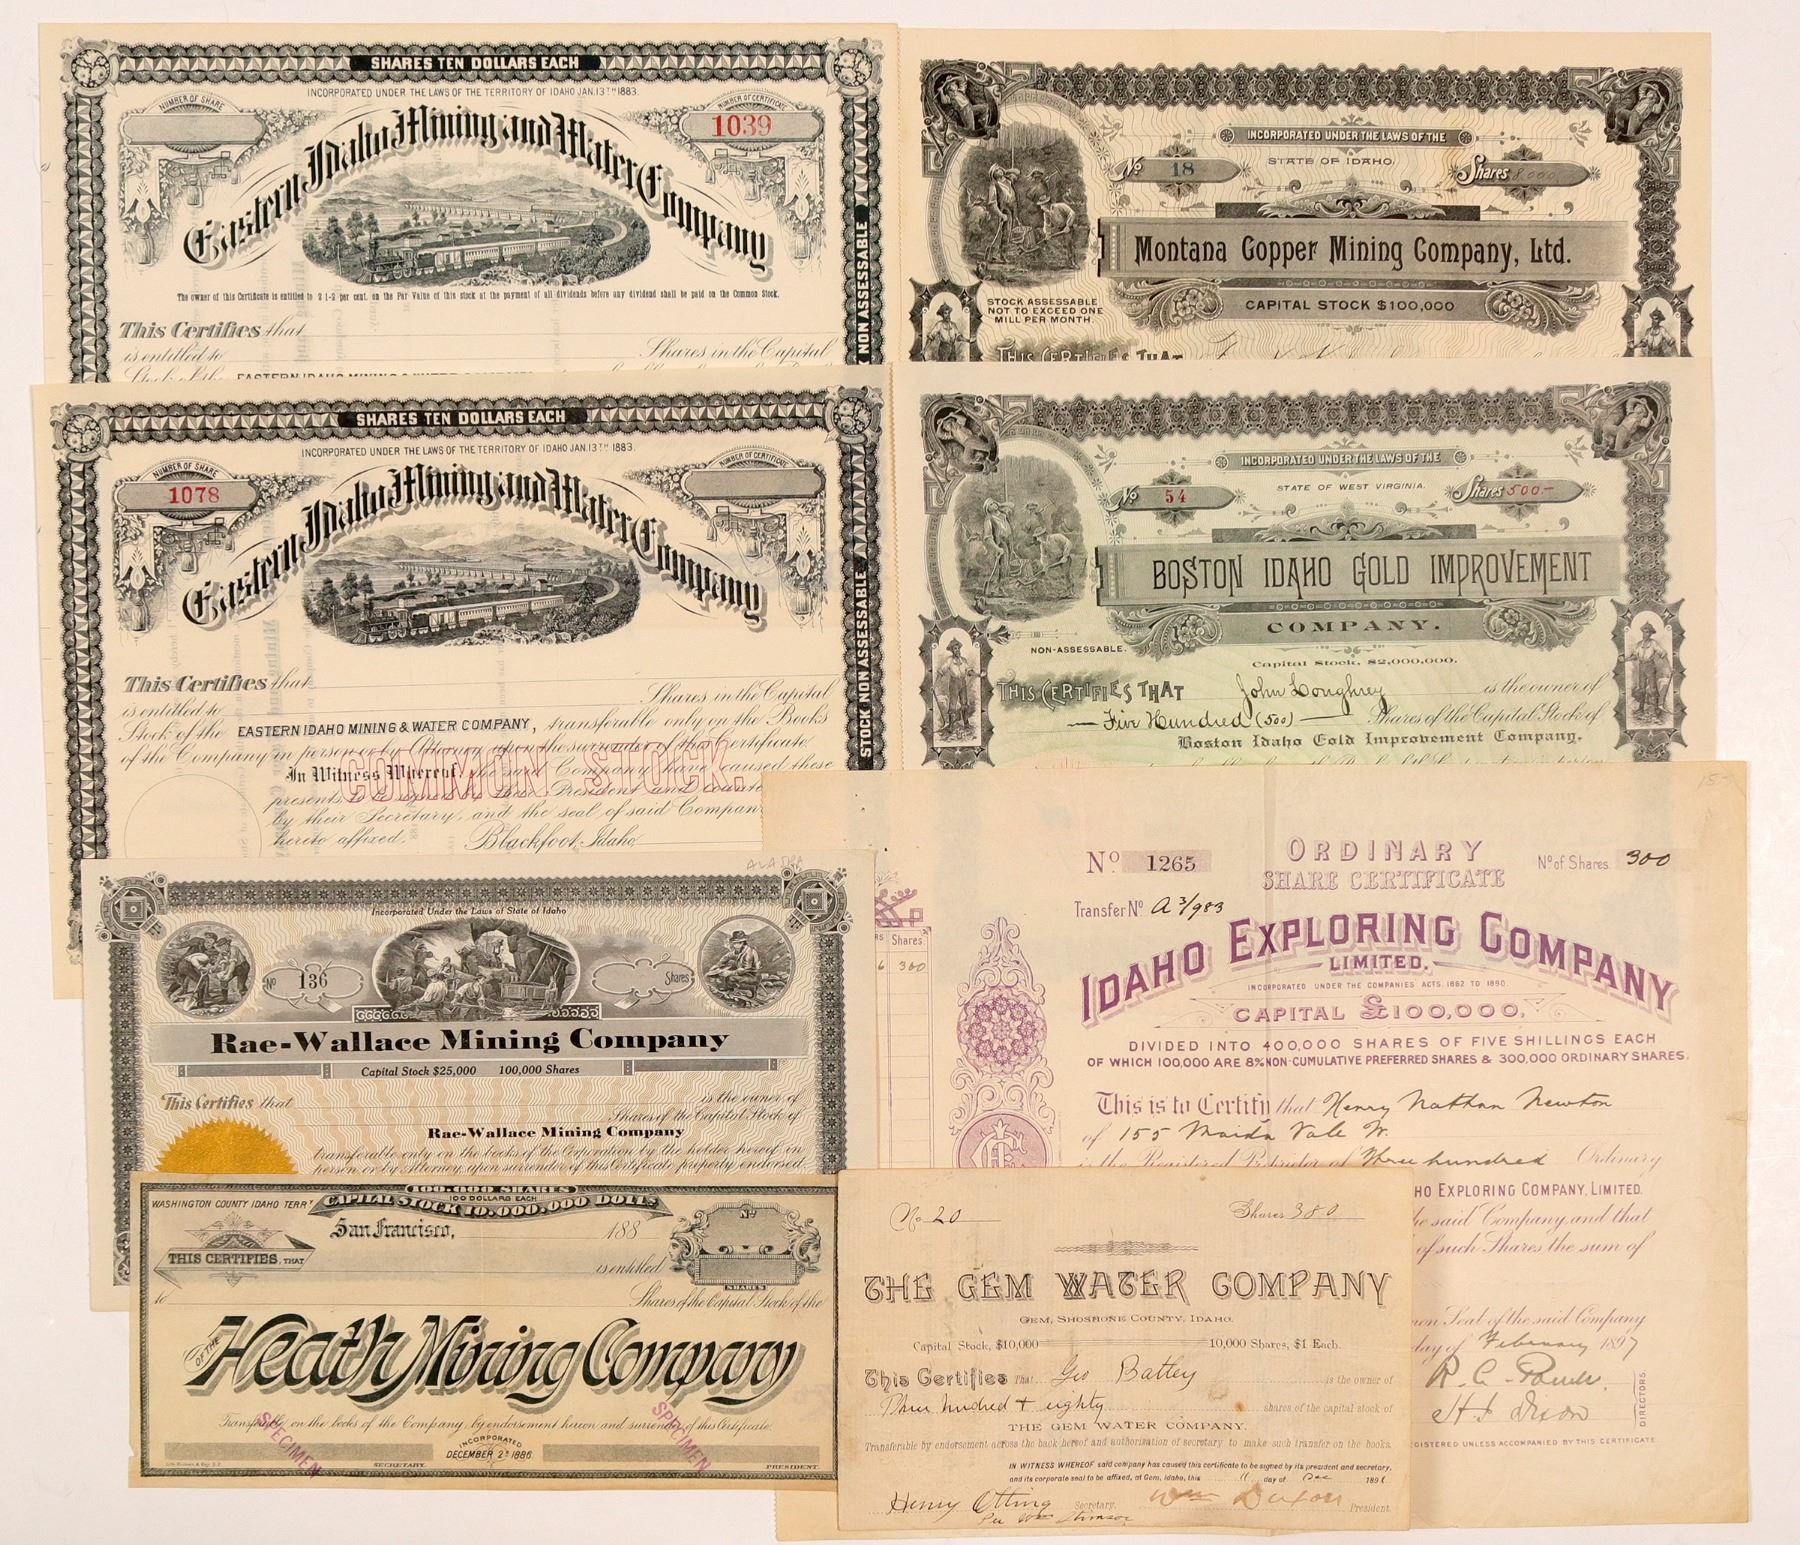 SHARES TEN DOLLARS EACH
INCORPORATED UNDER THE LAWS OF THE TERRITORY OF IDAHO JAN. 13TH 1883.
NUMBER OF SHARE
NUMBER OF CERTIFICATE
1039
Eastern Idaho Mining and Water Company
The owner of this Certificate is entitled to 2 1-2 per cent. on the Par Value of this stock at the payment of all dividends before any dividend shall be paid on the Common Stock.
This Certifies that
is entitled to Shares in the Capital
Stock of the EASTERN IDAHO MINING & WATER COMPANY
NON ASSESSABLE
SHARES TEN DOLLARS EACH
INCORPORATED UNDER THE LAWS OF THE TERRITORY OF IDAHO JAN. 13TH 1883.
NUMBER OF SHARE
1078
NUMBER OF CERTIFICATE
Eastern Idaho Mining and Water Company
This Certifies that
is entitled to Shares in the Capital
Stock of the EASTERN IDAHO MINING & WATER COMPANY, transferable only on the Books
of the Company in person or by Attorney upon the surrender of this Certificate
COMMON STOCK.
In Witness Whereof, the said Company have caused these
presents to be signed by their President and
by their Secretary, and the seal of said Company
hereto affixed. Blackfoot, Idaho,
STOCK NON ASSESSABLE
INCORPORATED UNDER THE LAWS OF THE
STATE OF IDAHO.
No 18
Shares 8,000
Montana Copper Mining Company, Ltd.
CAPITAL STOCK $100,000
STOCK ASSESSABLE
NOT TO EXCEED ONE
MILL PER MONTH.
THIS CERTIFIES THAT
INCORPORATED UNDER THE LAWS OF THE
STATE OF WEST VIRGINIA.
No 54
Shares 500-
BOSTON IDAHO GOLD IMPROVEMENT
COMPANY.
NON-ASSESSABLE.
Capital Stock, $2,000,000.
THIS CERTIFIES THAT John Loughrey is the owner of
Five Hundred (500) Shares of the Capital Stock of
Boston Idaho Gold Improvement Company.
Incorporated Under the Laws of State of Idaho
No 136
Shares
Rae-Wallace Mining Company
Capital Stock $25,000 100,000 Shares
This Certifies that is the owner of
Shares of the Capital Stock of
Rae-Wallace Mining Company
transferable only on the books of the Corporation by the holder hereof in
person or by Attorney upon surrender of this Certificate properly endorsed.
15-
Shares.
300
No 1265
ORDINARY
SHARE CERTIFICATE
No of Shares 300
Transfer No A3/983
IDAHO EXPLORING COMPANY
LIMITED.
INCORPORATED UNDER THE COMPANIES ACTS, 1862 TO 1890.
CAPITAL £100,000,
DIVIDED INTO 400,000 SHARES OF FIVE SHILLINGS EACH
OF WHICH 100,000 ARE 8% NON-CUMULATIVE PREFERRED SHARES & 300,000 ORDINARY SHARES.
This is to Certify that Henry Nathan Newton
of 155 Maida Vale W.
is the Registered Proprietor of Three hundred Ordinary
HO EXPLORING COMPANY, LIMITED.
the said Company, and that
of such Shares the sum of
on Seal of the said Company
day of February 1897
DIRECTORS
GISTERED UNLESS ACCOMPANIED BY THIS CERTIFICATE
WASHINGTON COUNTY IDAHO TERRY
100.000 SHARES
100 DOLLARS EACH
CAPITAL STOCK 10.000.000 DOLLS
San Francisco, 188
No
THIS CERTIFIES, THAT
is entitled
to Shares of the Capital Stock of the
SHARES
OF THE
Heath Mining Company
Transferable on the books of the Company, by endorsement hereon and surrender of this Certificate.
SPECIMEN
SPECIMEN
INCORPORATED
DECEMBER 2D 1886
SECRETARY.
PRESIDENT.
No 20
Shares 380
THE GEM WATER COMPANY
GEM, SHOSHONE COUNTY, IDAHO.
Capital Stock, $10,000 10,000 Shares, $1 Each.
This Certifies That Geo Battey is the owner of
Three hundred & eighty shares of the capital stock of
THE GEM WATER COMPANY.
Transferable by endorsement across the back hereof and authorization of secretary to make such transfer on the books.
IN WITNESS WHEREOF said company has caused this certificate to be signed by its president and secretary,
and its corporate seal to be affixed, at Gem, Idaho, this 11 day of Dec 189
Henry Otting Secretary.
President.